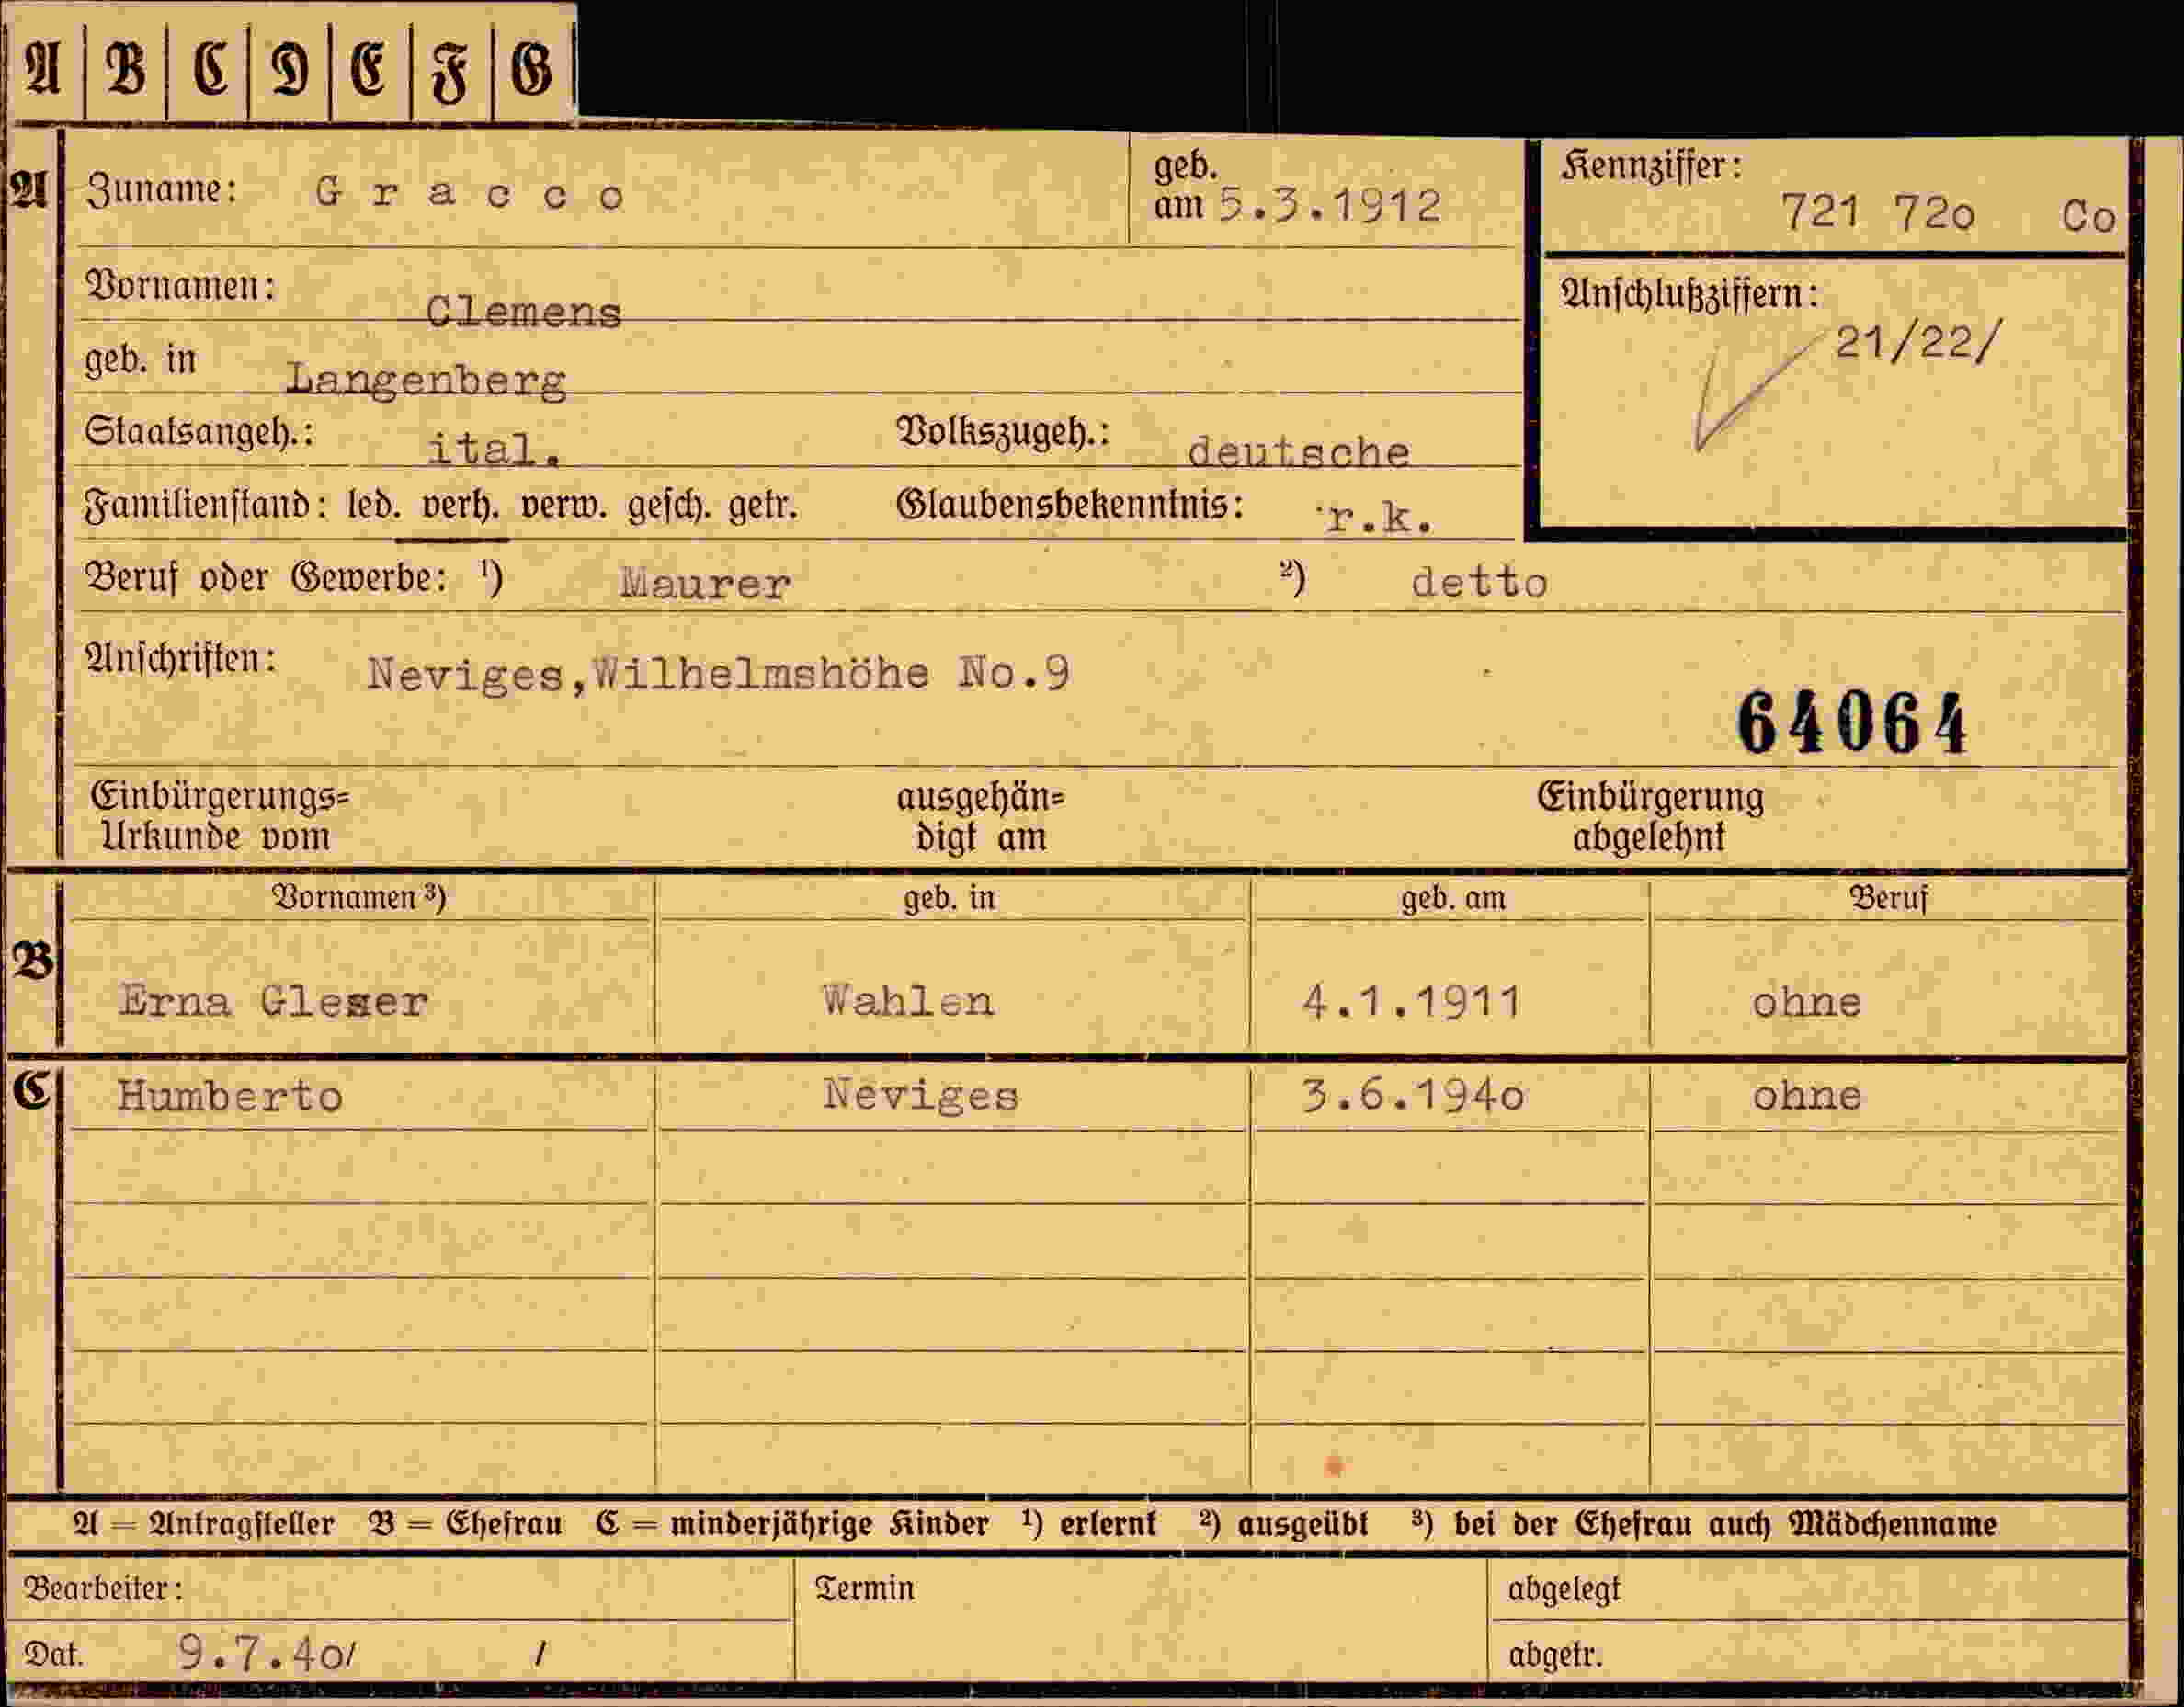 A B C D E F G
A Zuname: Gracco geb. am 5.3.1912 Kennziffer: 721 72o Co
Vornamen: Clemens Anschlußziffern: 21/22/
geb. in Langenberg
Staatsangeh.: ital. Volkszugeh.: deutsche
Familienstand: led. verh. verw. gesch. getr. Glaubensbekenntnis: r.k.
Beruf oder Gewerbe: ¹) Maurer ²) detto
Anschriften: Neviges,Wilhelmshöhe No.9
64064
Einbürgerungs= ausgehän= Einbürgerung
Urkunde vom digt am abgelehnt
Vornamen ³) geb. in geb. am Beruf
B Erna Gleser Wahlen 4.1.1911 ohne
C Humberto Neviges 3.6.194o ohne
A = Antragsteller B = Ehefrau C = minderjährige Kinder ¹) erlernt ²) ausgeübt ³) bei der Ehefrau auch Mädchenname
Bearbeiter: Termin abgelegt
Dat. 9.7.4o/ / abgetr.